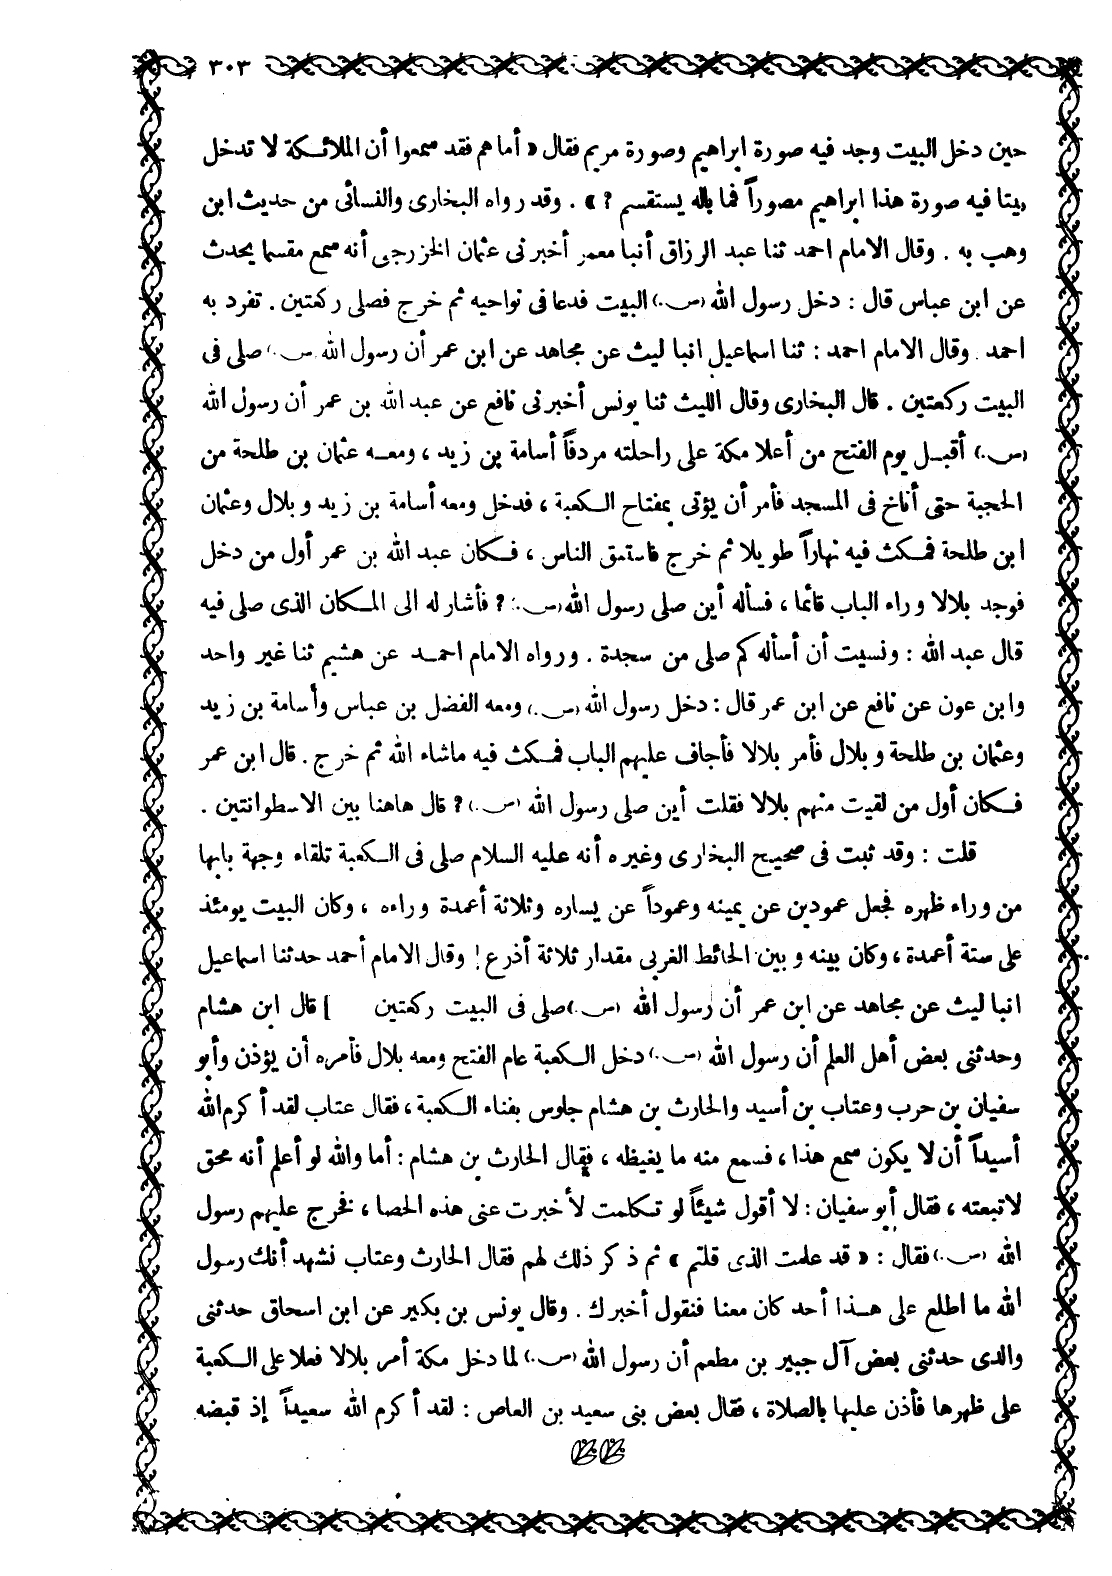 ٣٠٣
حين دخل البيت وجد فيه صورة ابراهيم وصورة مريم فقال « أما هم فقد سمعوا أن الملائكة لا تدخل
بيتا فيه صورة هذا ابراهيم مصوراً فما باله يستقسم ? » . وقد رواه البخارى والنسائى من حديث ابن
وهب به . وقال الامام احمد ثنا عبد الرزاق أنبا معمر أخبرنى عثمان الخزرجى أنه سمع مقسما يحدث
عن ابن عباس قال : دخل رسول الله (ص.) البيت فدعا فى نواحيه ثم خرج فصلى ركعتين . تفرد به
احمد . وقال الامام احمد : ثنا اسماعيل انبا ليث عن مجاهد عن ابن عمر أن رسول الله (ص.) صلى فى
البيت ركعتين . قال البخارى وقال الليث ثنا يونس أخبرنى نافع عن عبد الله بن عمر أن رسول الله
(ص.) أقبل يوم الفتح من أعلا مكة على راحلته مردفاً أسامة بن زيد ، ومعه عثمان بن طلحة من
الحجبة حتى أناخ فى المسجد فأمر أن يؤتى بمفتاح الكعبة ، فدخل ومعه أسامة بن زيد وبلال وعثمان
ابن طلحة فمكث فيه نهاراً طويلا ثم خرج فاستبق الناس ، فكان عبد الله بن عمر أول من دخل
فوجد بلالا وراء الباب قائما ، فسأله أين صلى رسول الله (ص.) ? فأشار له الى المكان الذى صلى فيه
قال عبد الله : ونسيت أن أسأله كم صلى من سجدة . ورواه الامام احمد عن هشيم ثنا غير واحد
وابن عون عن نافع عن ابن عمر قال : دخل رسول الله (ص.) ومعه الفضل بن عباس وأسامة بن زيد
وعثمان بن طلحة وبلال فأمر بلالا فأجاف عليهم الباب فمكث فيه ماشاء الله ثم خرج . قال ابن عمر
فكان أول من لقيت منهم بلالا فقلت أين صلى رسول الله (ص.) ? قال هاهنا بين الاسطوانتين .
قلت : وقد ثبت فى صحيح البخارى وغيره أنه عليه السلام صلى فى الكعبة تلقاء وجهة بابها
من وراء ظهره فجعل عمودين عن يمينه وعموداً عن يساره وثلاثة أعمدة وراءه ، وكان البيت يومئذ
على ستة أعمدة ، وكان بينه وبين الحائط الغربى مقدار ثلاثة أذرع ! وقال الامام أحمد حدثنا اسماعيل
انبا ليث عن مجاهد عن ابن عمر أن رسول الله (ص.) صلى فى البيت ركعتين ] قال ابن هشام
وحدثنى بعض أهل العلم أن رسول الله (ص.) دخل الكعبة عام الفتح ومعه بلال فأمره أن يؤذن وأبو
سفيان بن حرب وعتاب بن أسيد والحارث بن هشام جلوس بفناء الكعبة ، فقال عتاب لقد أكرم الله
أسيداً أن لا يكون سمع هذا ، فسمع منه ما يغيظه ، فقال الحارث بن هشام : أما والله لو أعلم أنه محق
لاتبعته ، فقال أبو سفيان : لا أقول شيئاً لو تكلمت لأخبرت عنى هذه الحصا ، فخرج عليهم رسول
الله (ص.) فقال : « قد علمت الذى قلتم » ثم ذكر ذلك لهم فقال الحارث وعتاب نشهد أنك رسول
الله ما اطلع على هذا أحد كان معنا فنقول أخبرك . وقال يونس بن بكير عن ابن اسحاق حدثنى
والدى حدثنى بعض آل جبير بن مطعم أن رسول الله (ص.) لما دخل مكة أمر بلالا فعلا على الكعبة
على ظهرها فأذن عليها بالصلاة ، فقال بعض بنى سعيد بن العاص : لقد أكرم الله سعيداً إذ قبضه